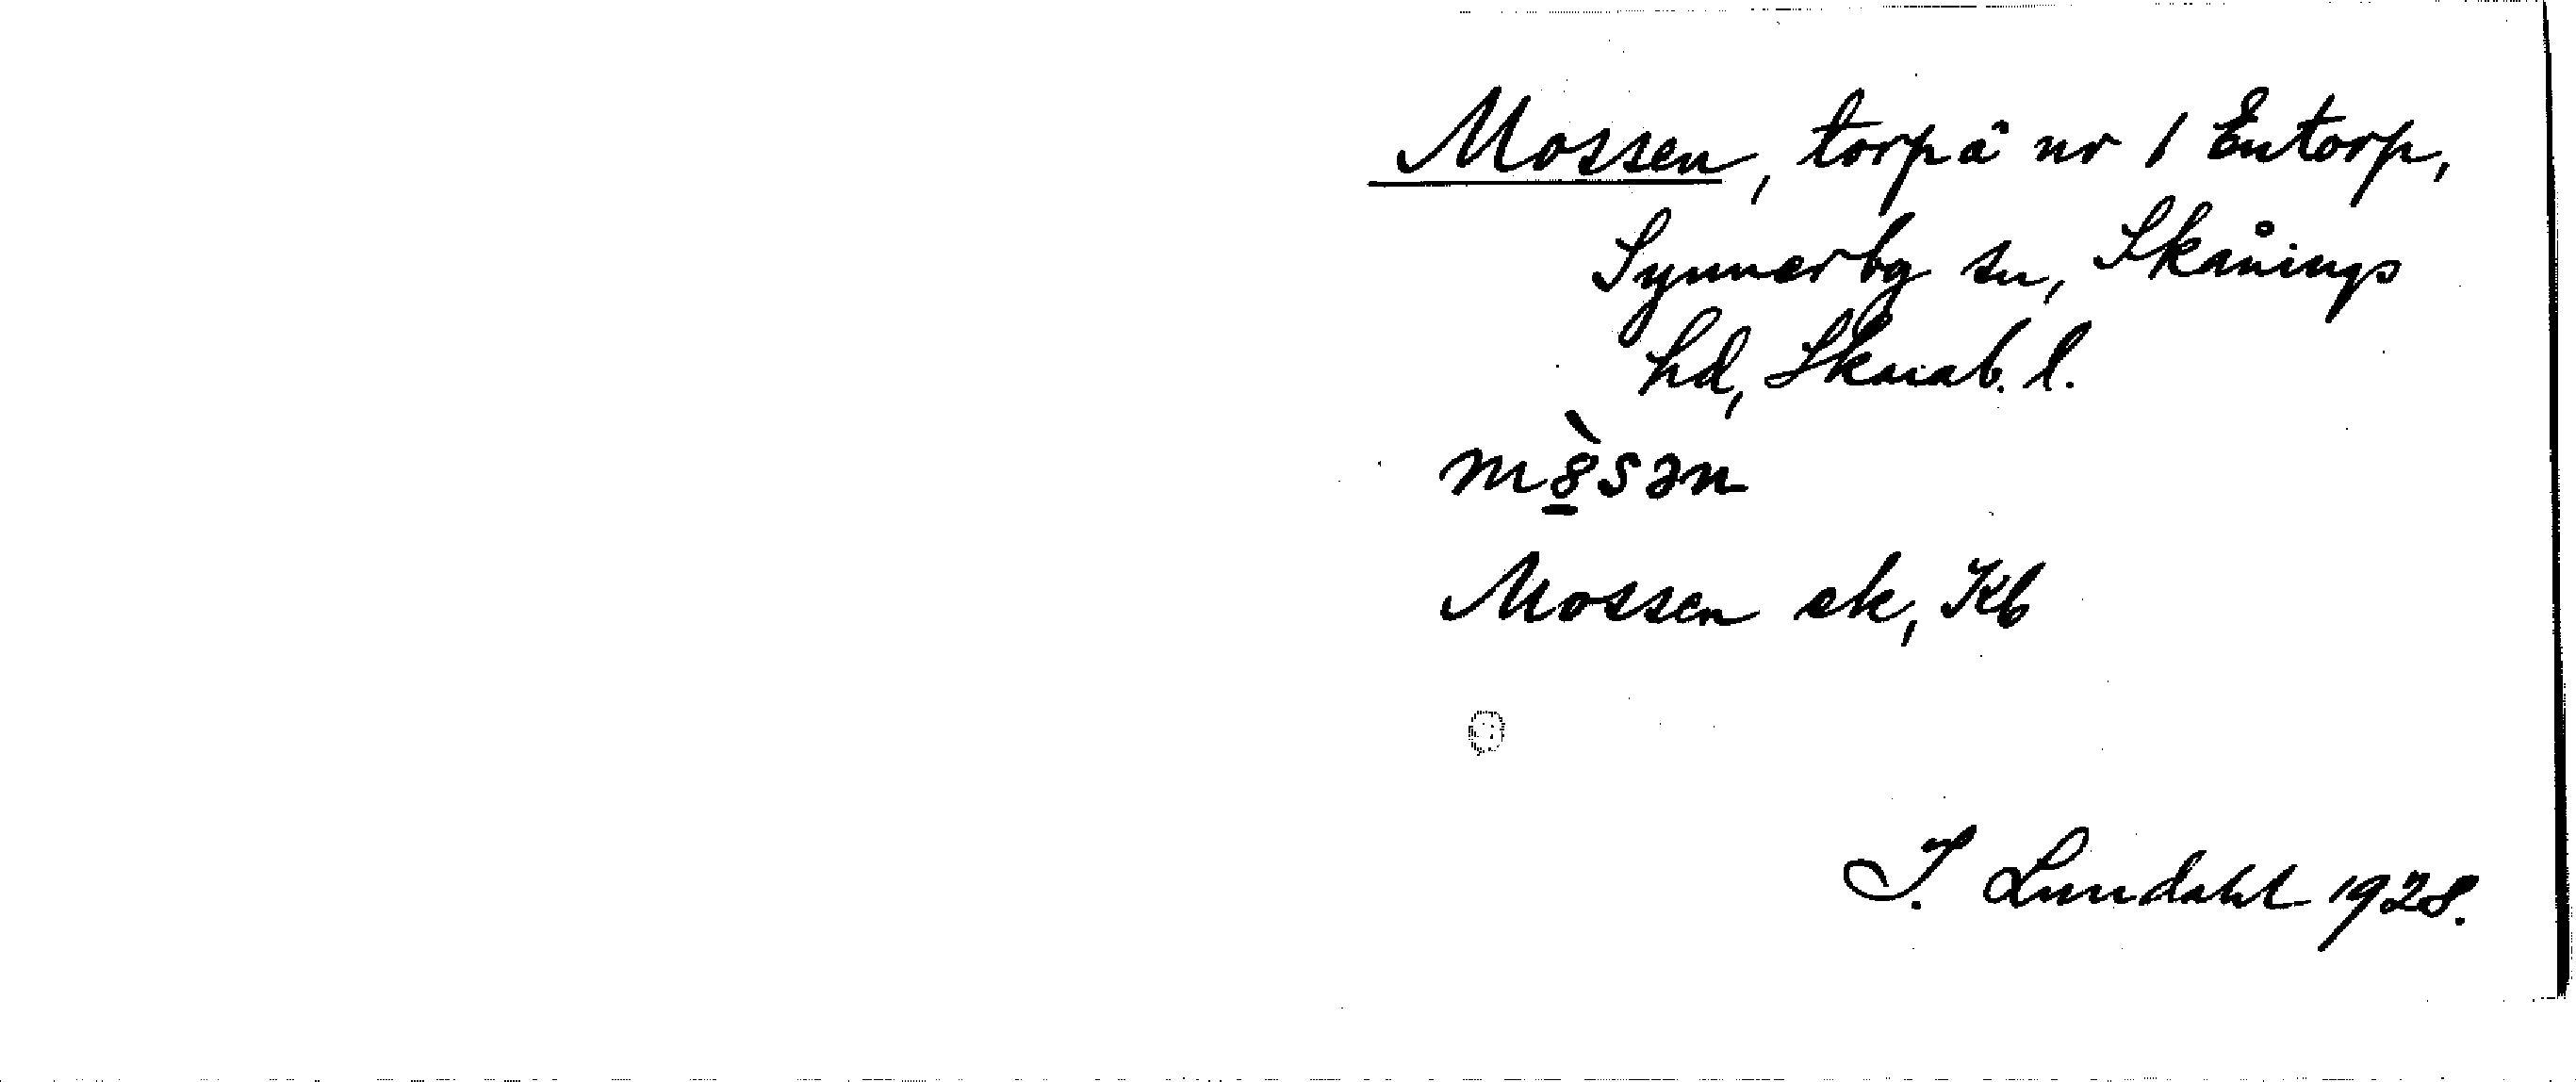 Mossen, torp å nr 1 Entorp,
Synnerby sn, Skånings
hd, Skarab. l.
m8̱̀sən
Mossen ek, Kb
I. Lundahl 1928.